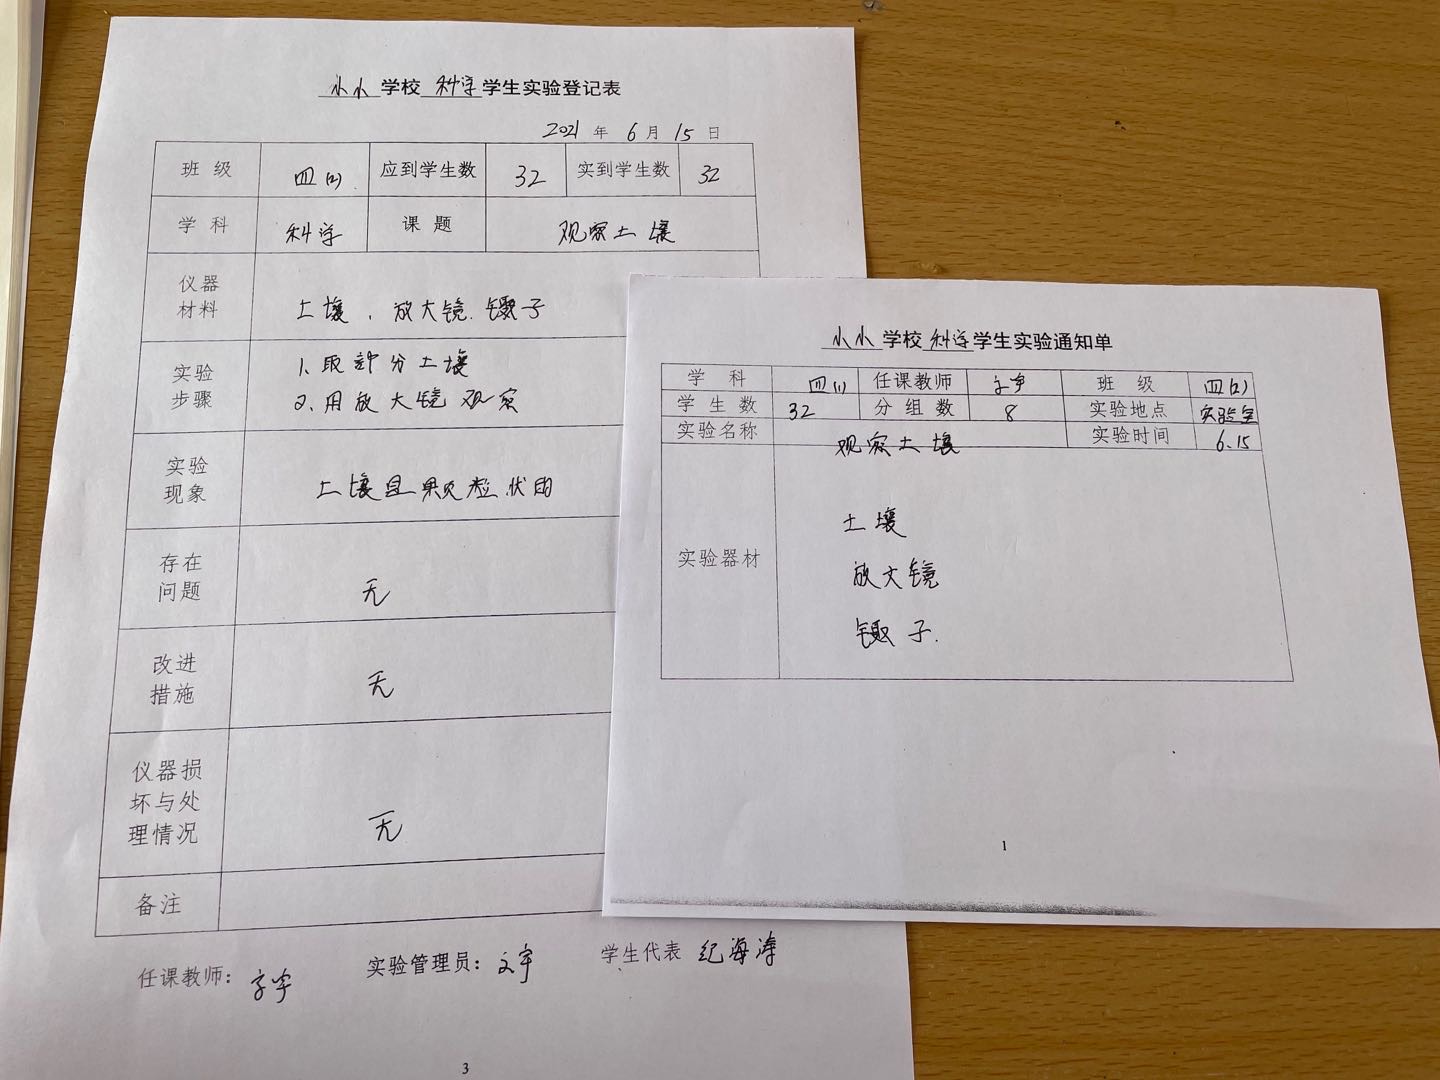 小小学校科学学生实验登记表
2021年6月15日
班级 四(2) 应到学生数 32 实到学生数 32
学科 科学 课题 观察土壤
仪器材料 土壤、放大镜、镊子
实验步骤 1、取部分土壤
2、用放大镜观察
实验现象 土壤是颗粒状的
存在问题 无
改进措施 无
仪器损坏与处理情况 无
备注
任课教师: 实验管理员: 文宇 学生代表 纪海涛
3
小小学校科学学生实验通知单
学科 四(1) 任课教师 文宇 班级 四(2)
学生数 32 分组数 8 实验地点 实验室
实验名称 观察土壤 实验时间 6.15
实验器材 土壤
放大镜
镊子.
1